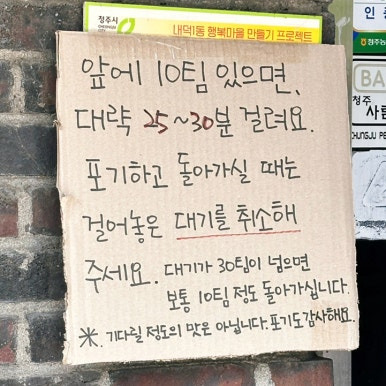 청주시
내덕1동 행복마을 만들기 프로젝트
앞에 10팀 있으면,
대략 25~30분 걸려요.
포기하고 돌아가실 때는
걸어놓은 대기를 취소해
주세요. 대기가 30팀이 넘으면
보통 10팀 정도 돌아가십니다.
※. 기다릴 정도의 맛은 아닙니다. 포기도 감사해요.
인 증
BA
청주
사람
CHUNGJU PE